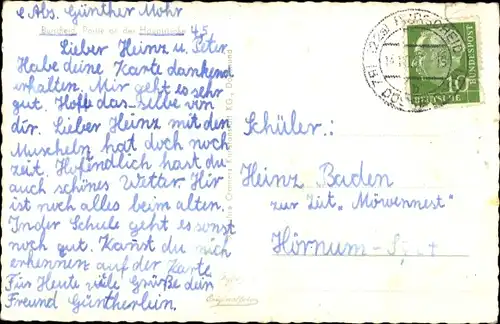 Abs. Günther Mohr
45
Lieber Heinz u. Peter
Habe deine Karte dankend
erhalten. Mir geht es sehr
gut. Hoffe das selbe von
dir. Lieber Heinz mit den
Muscheln hat doch noch
zeit. Hofendlich hast du
auch schönes Wetter. Hir
ist noch alles beim alten.
In der Schule geht es sonst
noch gut. Kannst du mich
erkennen auf der Karte
Für Heute viele Grüße dein
Freund Güntherlein.
Schüler:
Heinz Baden
zur Zeit "Möwennest"
Hörnum-
10
BUNDESPOST